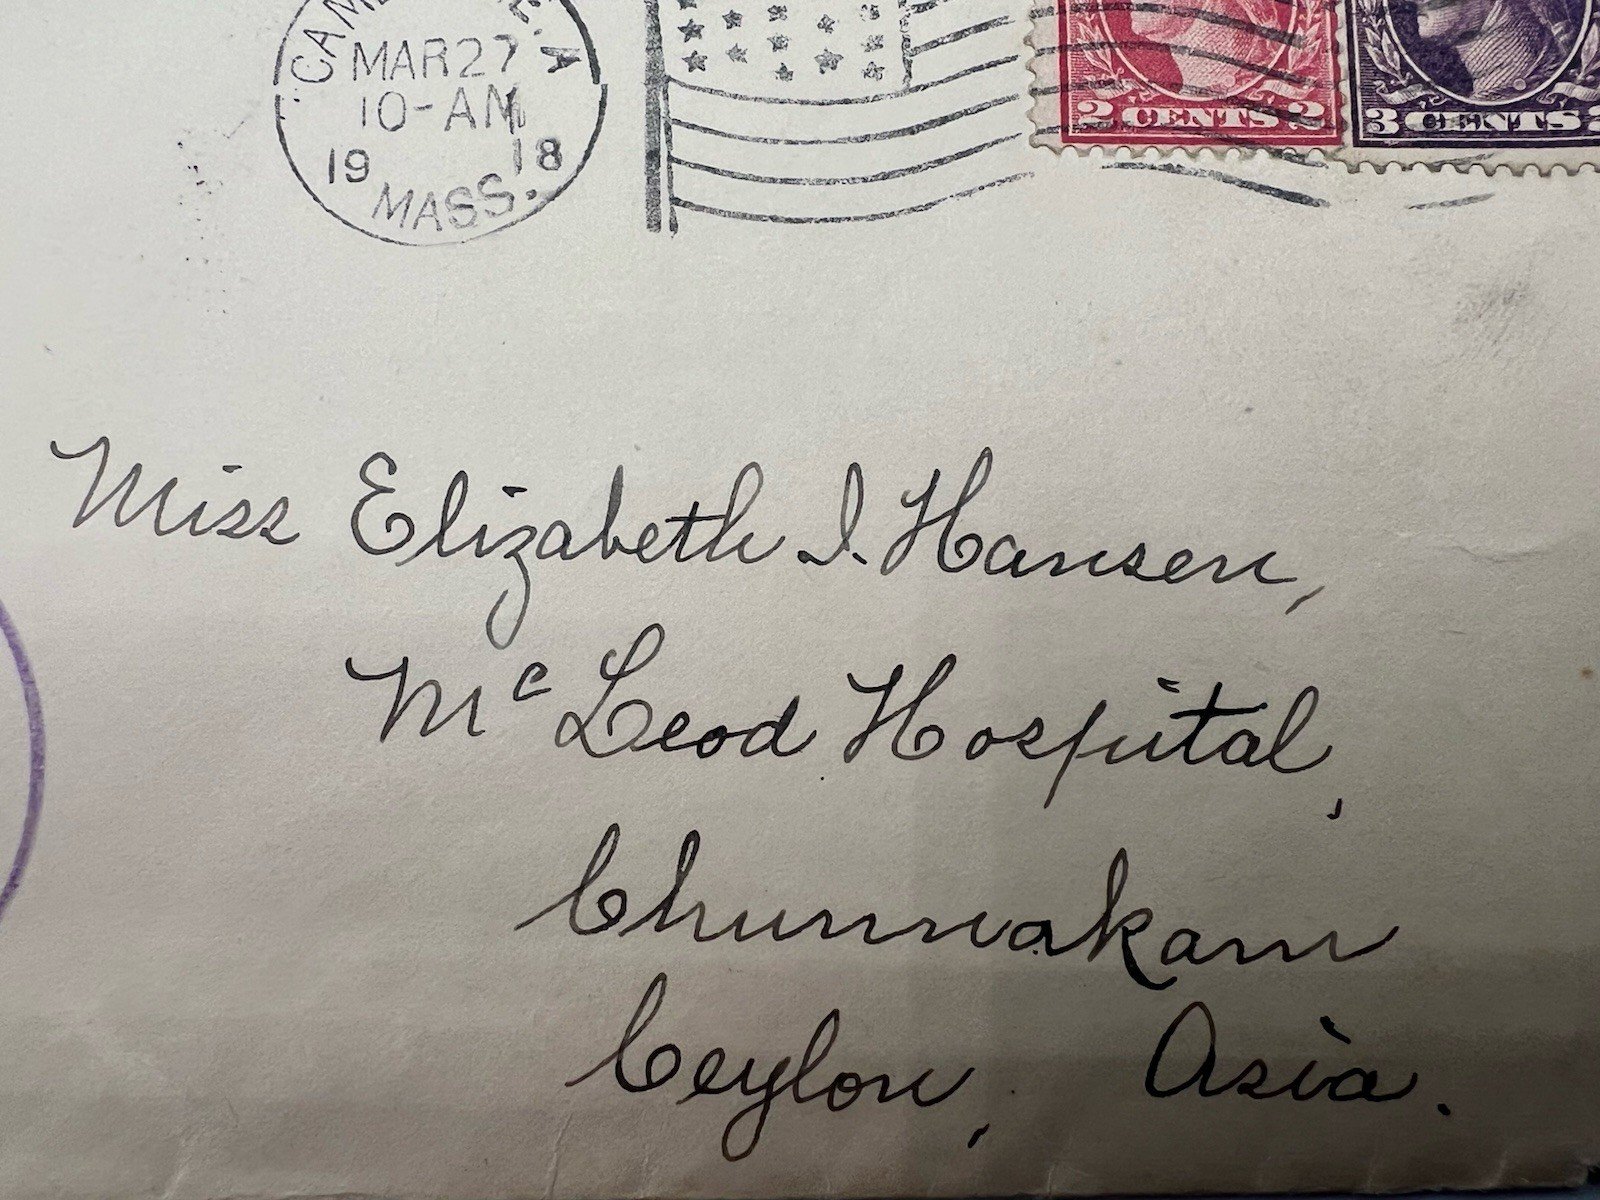 MAR 27
10-AM
19 18
MASS.
2 CENTS 2
3 CENTS
Miss Elizabeth I. Hansen,
Mc Leod Hospital,
Chunnakam
Ceylon, Asia.